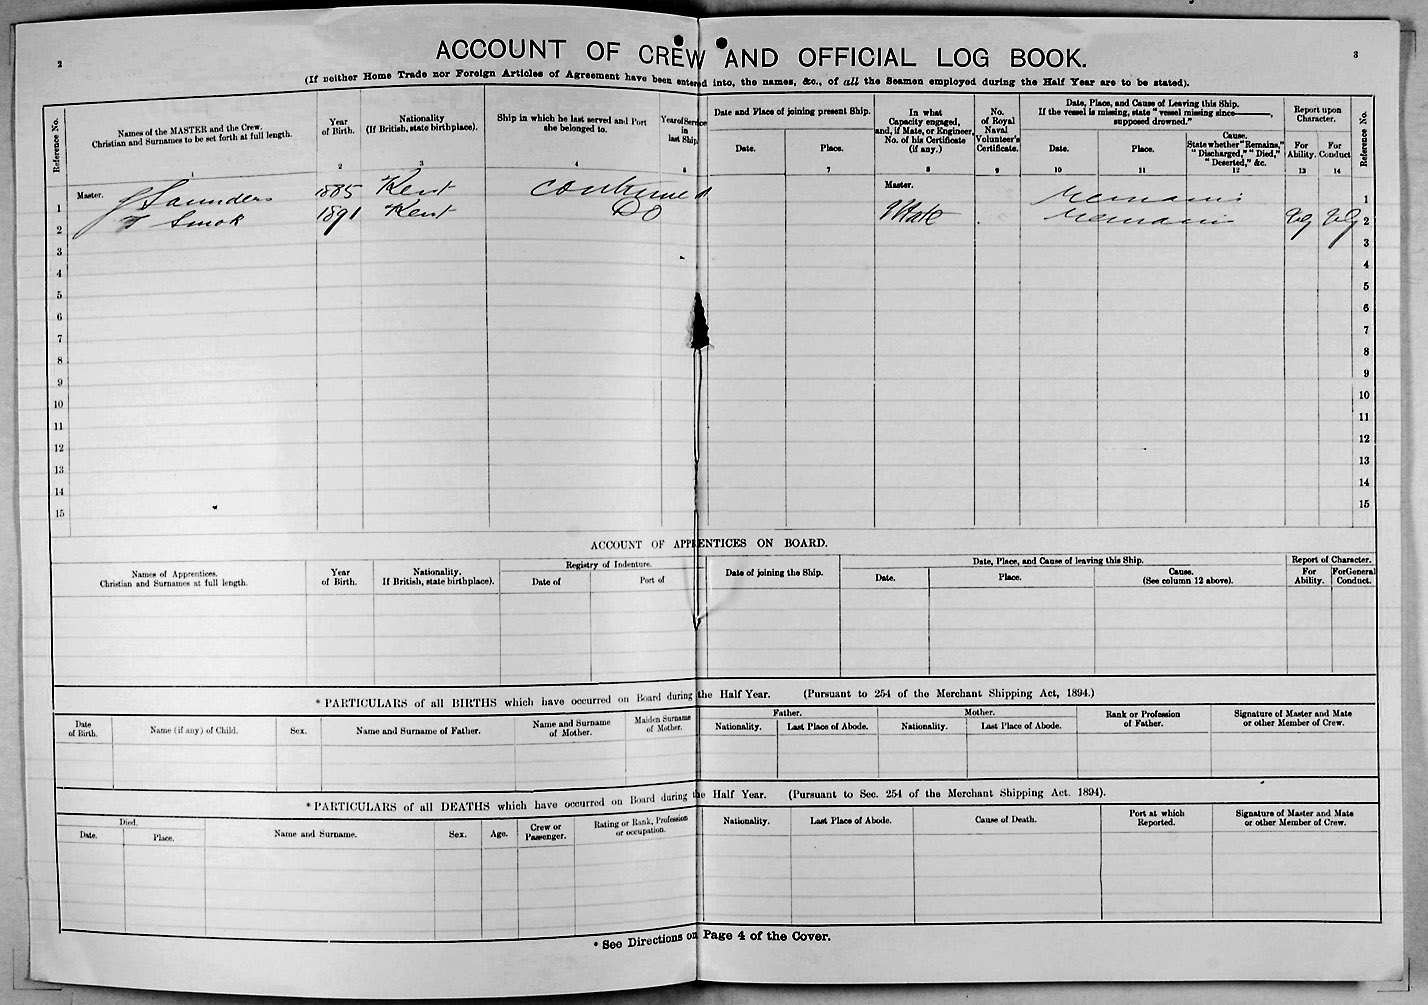 2
3
ACCOUNT OF CREW AND OFFICIAL LOG BOOK.
(If neither Home Trade nor Foreign Articles of Agreement have been entered into, the names, &c., of all the Seamen employed during the Half Year are to be stated).
Reference No.
Names of the MASTER and the Crew.
Christian and Surnames to be set forth at full length.
1
Year
of Birth.
2
Nationality
(If British, state birthplace).
3
Ship in which he last served and Port
she belonged to.
4
Year of Service
in
last Ship
Date and Place of joining present Ship.
Date.
Place.
7
In what
Capacity engaged,
and, if Mate, or Engineer,
No. of his Certificate
(if any.)
8
No.
of Royal
Naval
Volunteer's
Certificate.
9
Date, Place, and Cause of Leaving this Ship.
If the vessel is missing, state "vessel missing since———,
supposed drowned."
Date.
10
Place.
11
Cause.
State whether "Remains,"
"Discharged," "Died,"
"Deserted," &c.
12
Report upon
Character.
For
Ability.
13
For
Conduct
14
Reference No.
1 Master. J Saunders 1885 Kent Continued Master. Remains 1
2 T Smok 1891 Kent Do Mate Remains Vg Vg 2
3 3
4 4
5 5
6 6
7 7
8 8
9 9
10 10
11 11
12 12
13 13
14 14
15 15
ACCOUNT OF APPRENTICES ON BOARD.
Names of Apprentices.
Christian and Surnames at full length.
Year
of Birth.
Nationality.
If British, state birthplace).
Registry of Indenture.
Date of
Port of
Date of joining the Ship.
Date, Place, and Cause of leaving this Ship.
Date.
Place.
Cause.
(See column 12 above).
Report of Character.
For
Ability.
For General
Conduct.
* PARTICULARS of all BIRTHS which have occurred on Board during the Half Year. (Pursuant to 254 of the Merchant Shipping Act, 1894.)
Date
of Birth.
Name (if any) of Child.
Sex.
Name and Surname of Father.
Name and Surname
of Mother.
Maiden Surname
of Mother.
Father.
Nationality.
Last Place of Abode.
Mother.
Nationality.
Last Place of Abode.
Rank or Profession
of Father.
Signature of Master and Mate
or other Member of Crew.
* PARTICULARS of all DEATHS which have occurred on Board during the Half Year. (Pursuant to Sec. 254 of the Merchant Shipping Act. 1894).
Died.
Date.
Place.
Name and Surname.
Sex.
Age.
Crew or
Passenger.
Rating or Rank, Profession
or occupation.
Nationality.
Last Place of Abode.
Cause of Death.
Port at which
Reported.
Signature of Master and Mate
or other Member of Crew.
* See Directions on Page 4 of the Cover.